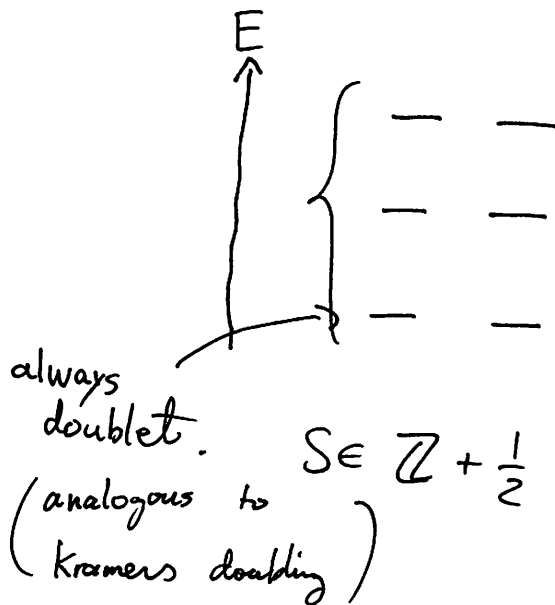 E
always
doublet.
S ∈ ℤ + 1/2
(analogous to
Kramers doubling)